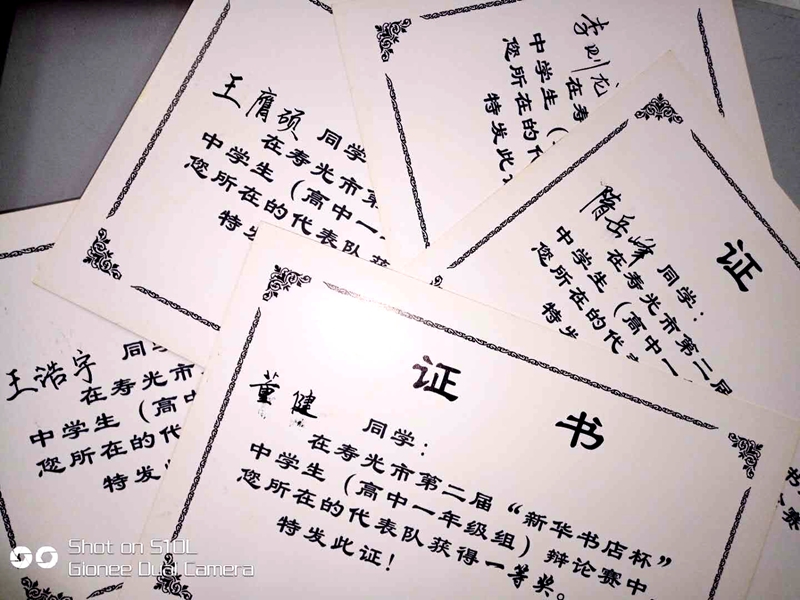 王膺硕 同学
在寿光市第
中学生（高中一年
您所在的代表队获
特发
李则龙
在寿
中学生（
您所在的
特发此证
隋岳峰 同学：
证
在寿光市第二届
中学生（高中一
您所在的代表
特发此
王浩宇 同学
在寿光市
中学生（高中
您所在的代
特发此
证 书
董健 同学：
在寿光市第二届“新华书店杯”
中学生（高中一年级组）辩论赛中，
您所在的代表队获得一等奖。
特发此证！
Shot on S10L
Gionee Dual Camera